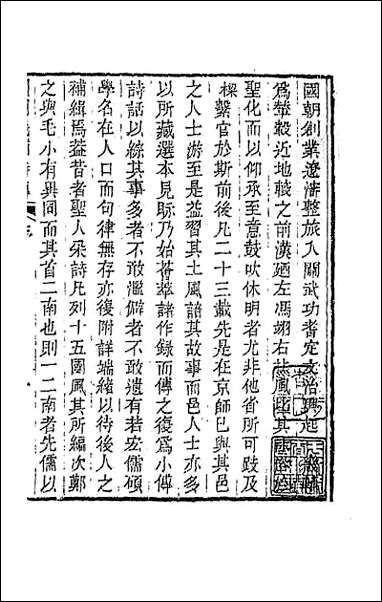 國朝創業遼瀋整旅入關武功耆定文治興起
爲輦轂近地較之前漢廼左馮翊右扶風比其
聖化而以仰承至意鼓吹休明者尤非他省所可跂及
樑繫官於斯前後凡二十三載先是在京師已與其邑
之人士游至是益習其土風語其故事而邑人士亦多
以所藏選本見貽乃始薈萃諸作録而傳之復爲小傳
詩話以綜其事多者不敢濫僻者不敢遺有若宏儒碩
學名在人口而句律無存亦復附詳端緒以待後人之
補緝焉蓋昔者聖人采詩凡列十五國風其所編次鄭
之與毛小有異同而其首二南也則一二南者先儒以